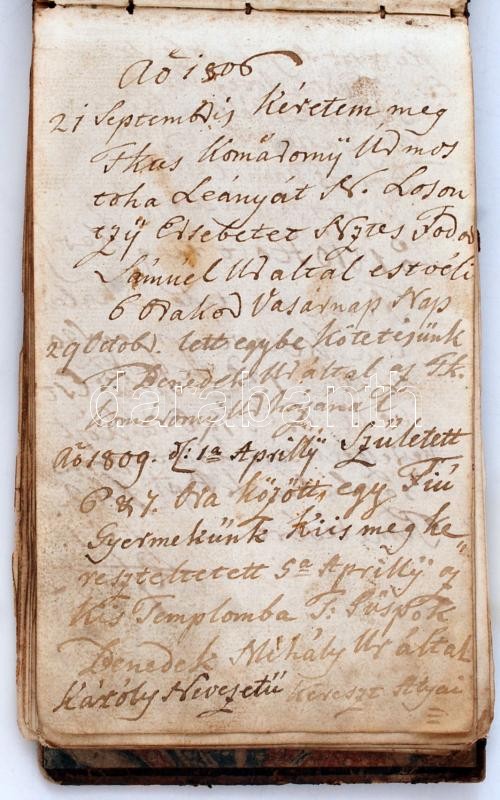 Aō 1806
21 Septembris Kéretem meg
Tkts Komáromÿ Ur mos
toha Leányát N. Loson
tzÿ Ersebetet Nztes Fodor
Sámuel Ur által estvéli
6 Orakor Vasárnap Nap
29 Octobr. lett egybe kötetésünk
T. Benedek Ur által az Tk.
Komáromÿ Ur Házánál
Aō 1809. d: 1a Aprillÿ Született
6 & 7. Ora között, egy Fiú
Gyermekünk Kiis megke
reszteltetett 5a Aprillÿ az
Kis Templomba T: Püspök
Benedek Mihály Ur által
Károly Nevezetü Kereszt Atyai
darabanth